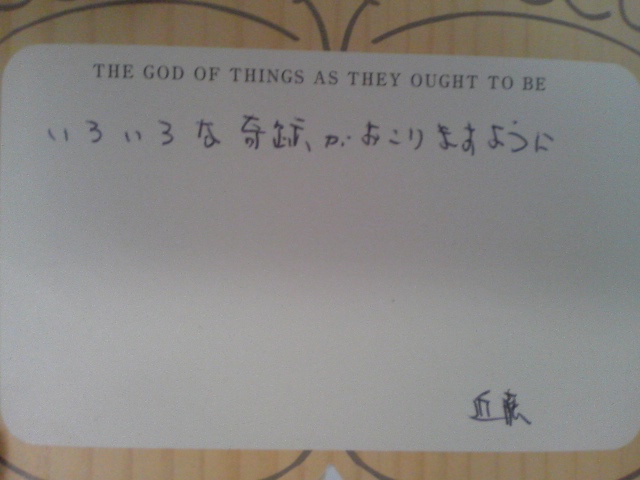 THE GOD OF THINGS AS THEY OUGHT TO BE
いろいろな奇跡がおこりますように
近藤